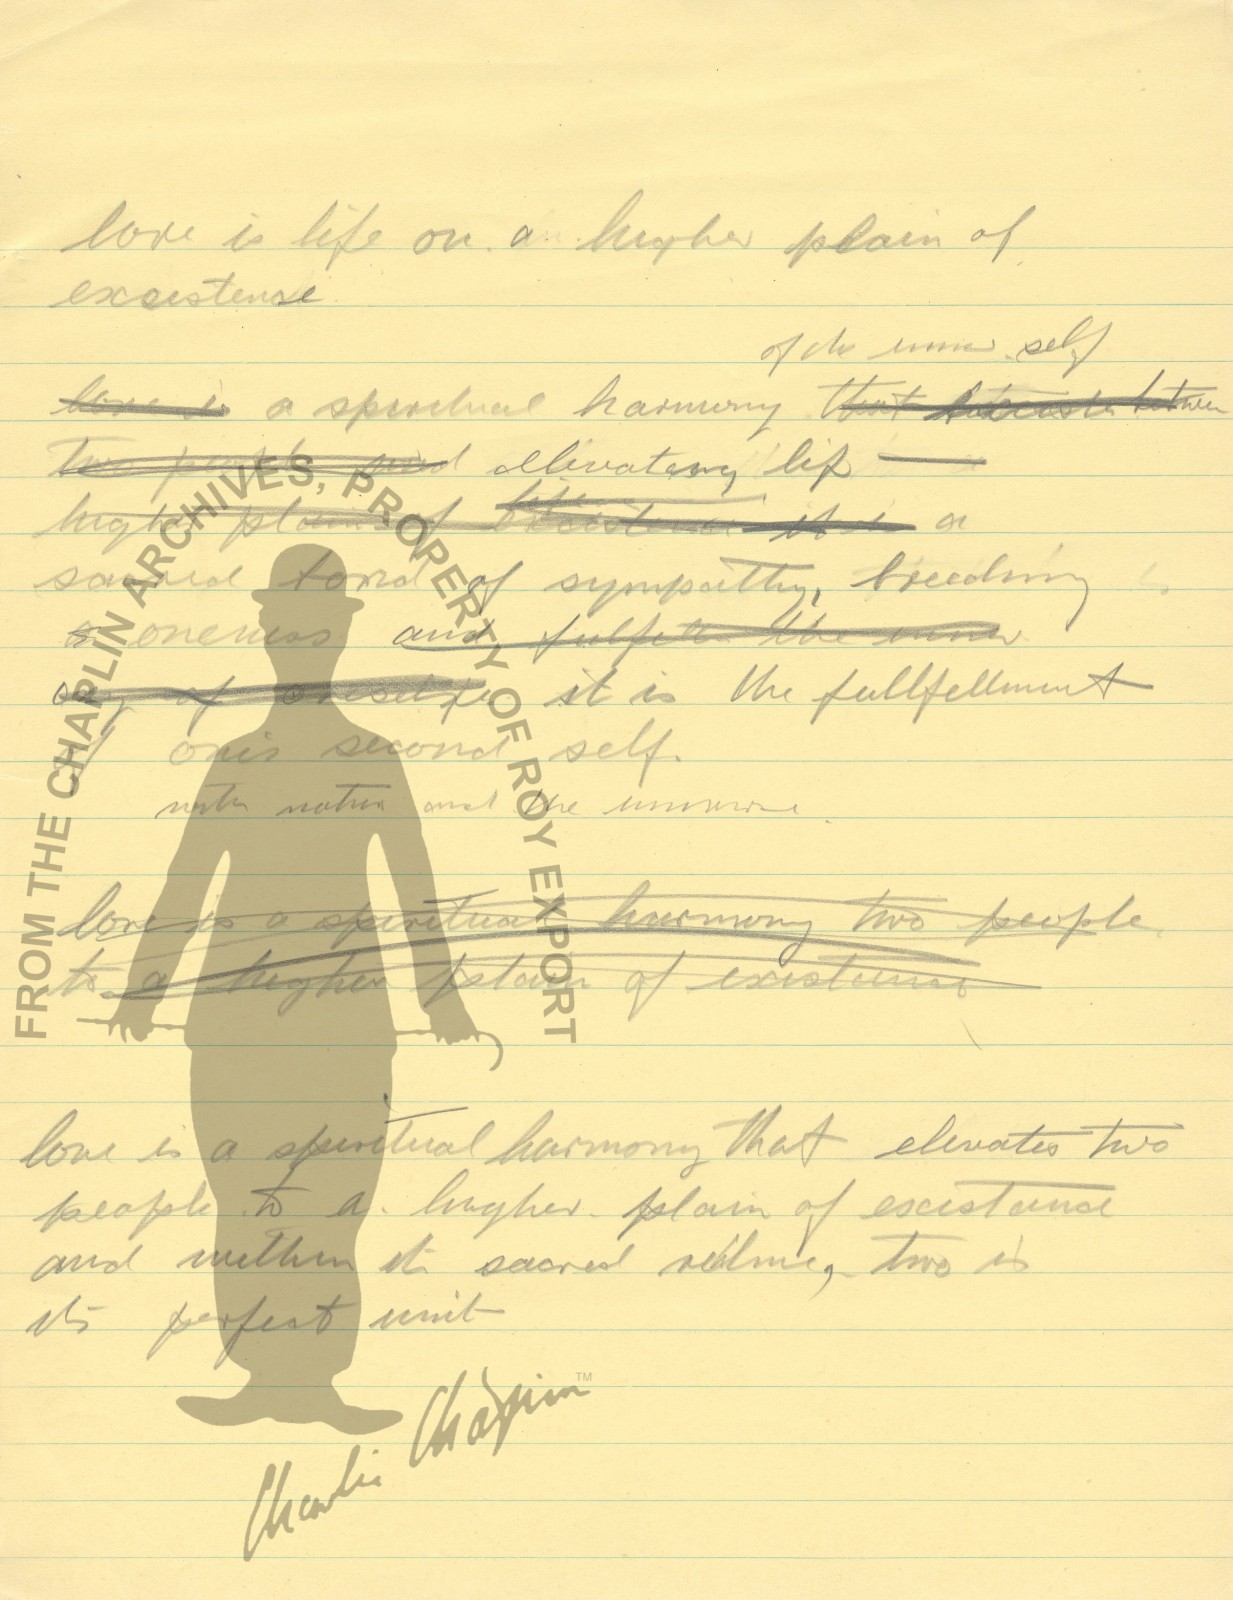 love is life on a higher plain of
excistence
of the inner self
love is a spiritual harmony that between
two people and ellevating life
higher plain of life excistence it is a
sacred bond of sympathy, breeding
a oneness and, fulfill the inner
of oneself it is the fullfellment
of one's second self.
with nature and the universe.
love is a spiritual harmony two people
to a higher plain of existence
love is a spiritual harmony that elevates two
people to a higher plain of excistence
and within its sacred two is
its perfect unit
FROM THE CHAPLIN ARCHIVES, PROPERTY OF ROY EXPORT
Charlie Chaplin TM